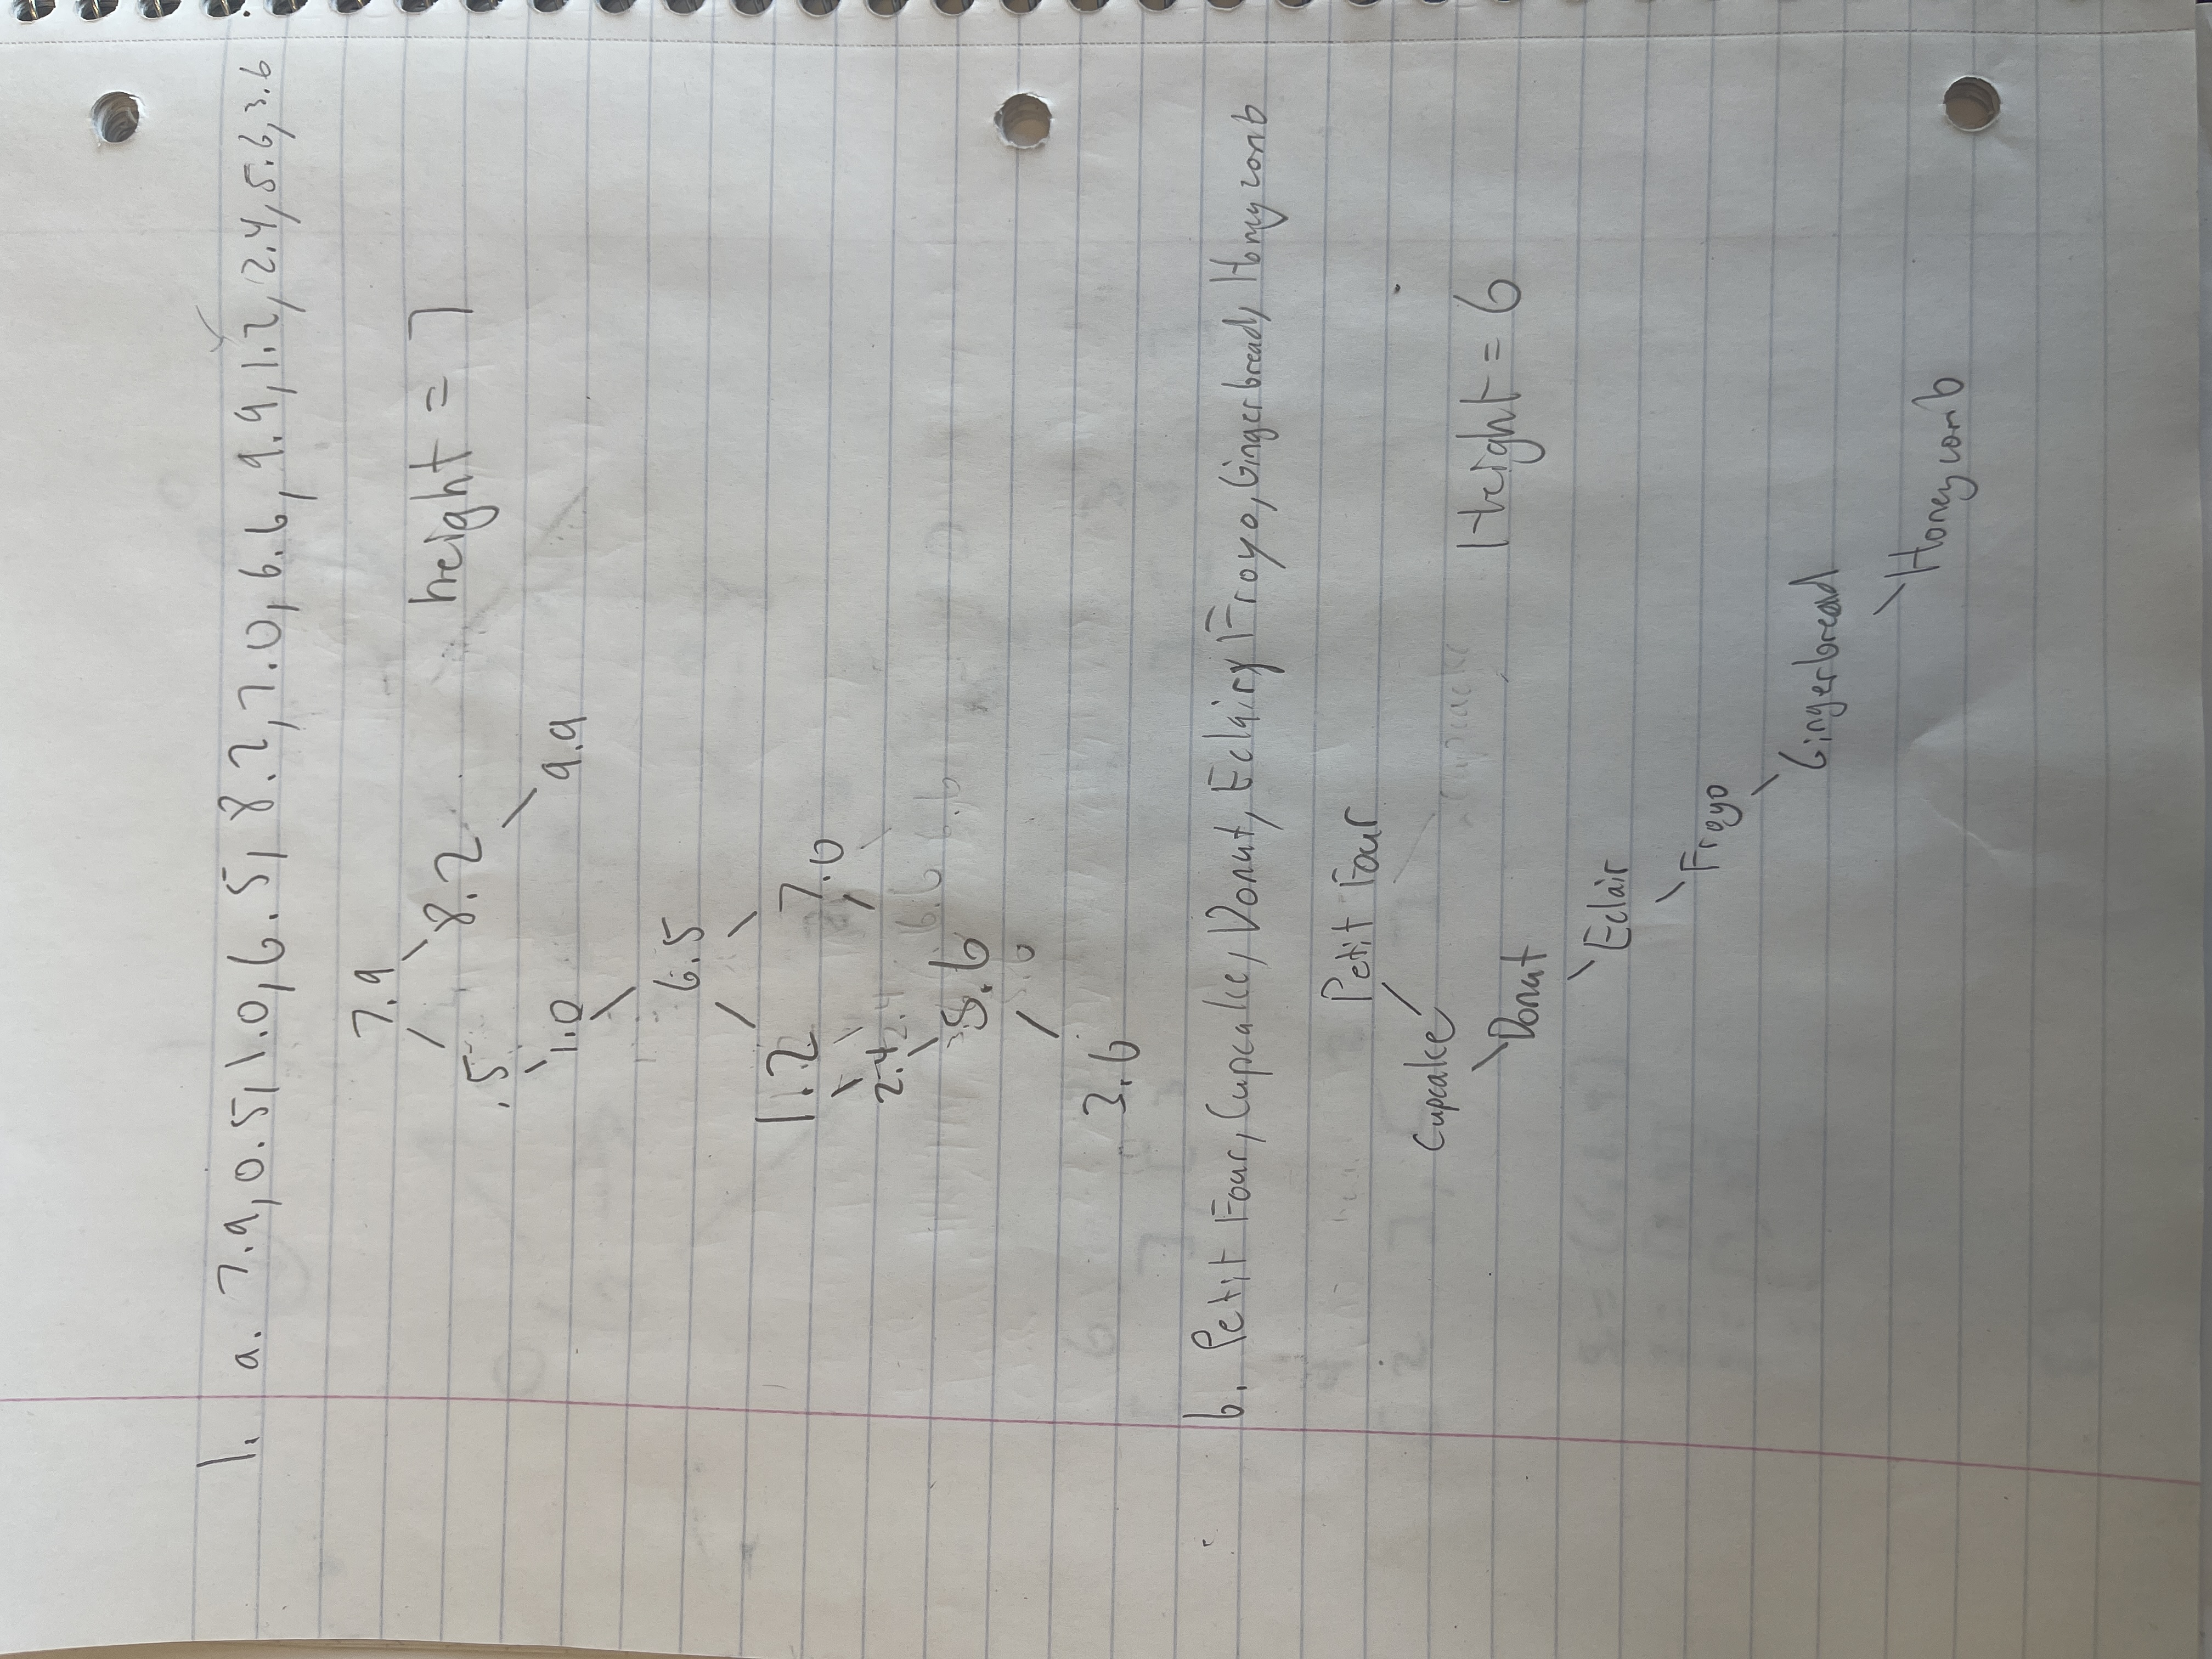 1. a. 7.9, 0.5, 1.0, 6.5, 8.2, 7.0, 6.6, 9.9, 1.2, 2.4, 5.6, 3.6
7.9
height = 7
8.2
.5
1.0
9.9
6.5
1.2 7.0
2.4 2.4
6.6 6.6
5.6
3.6
b. Petit Four, Cupcake, Donut, Eclair, Froyo, Gingerbread, Honeycomb
Petit Four
Cupcake
Height = 6
Donut
Eclair
Froyo
Gingerbread
Honeycomb